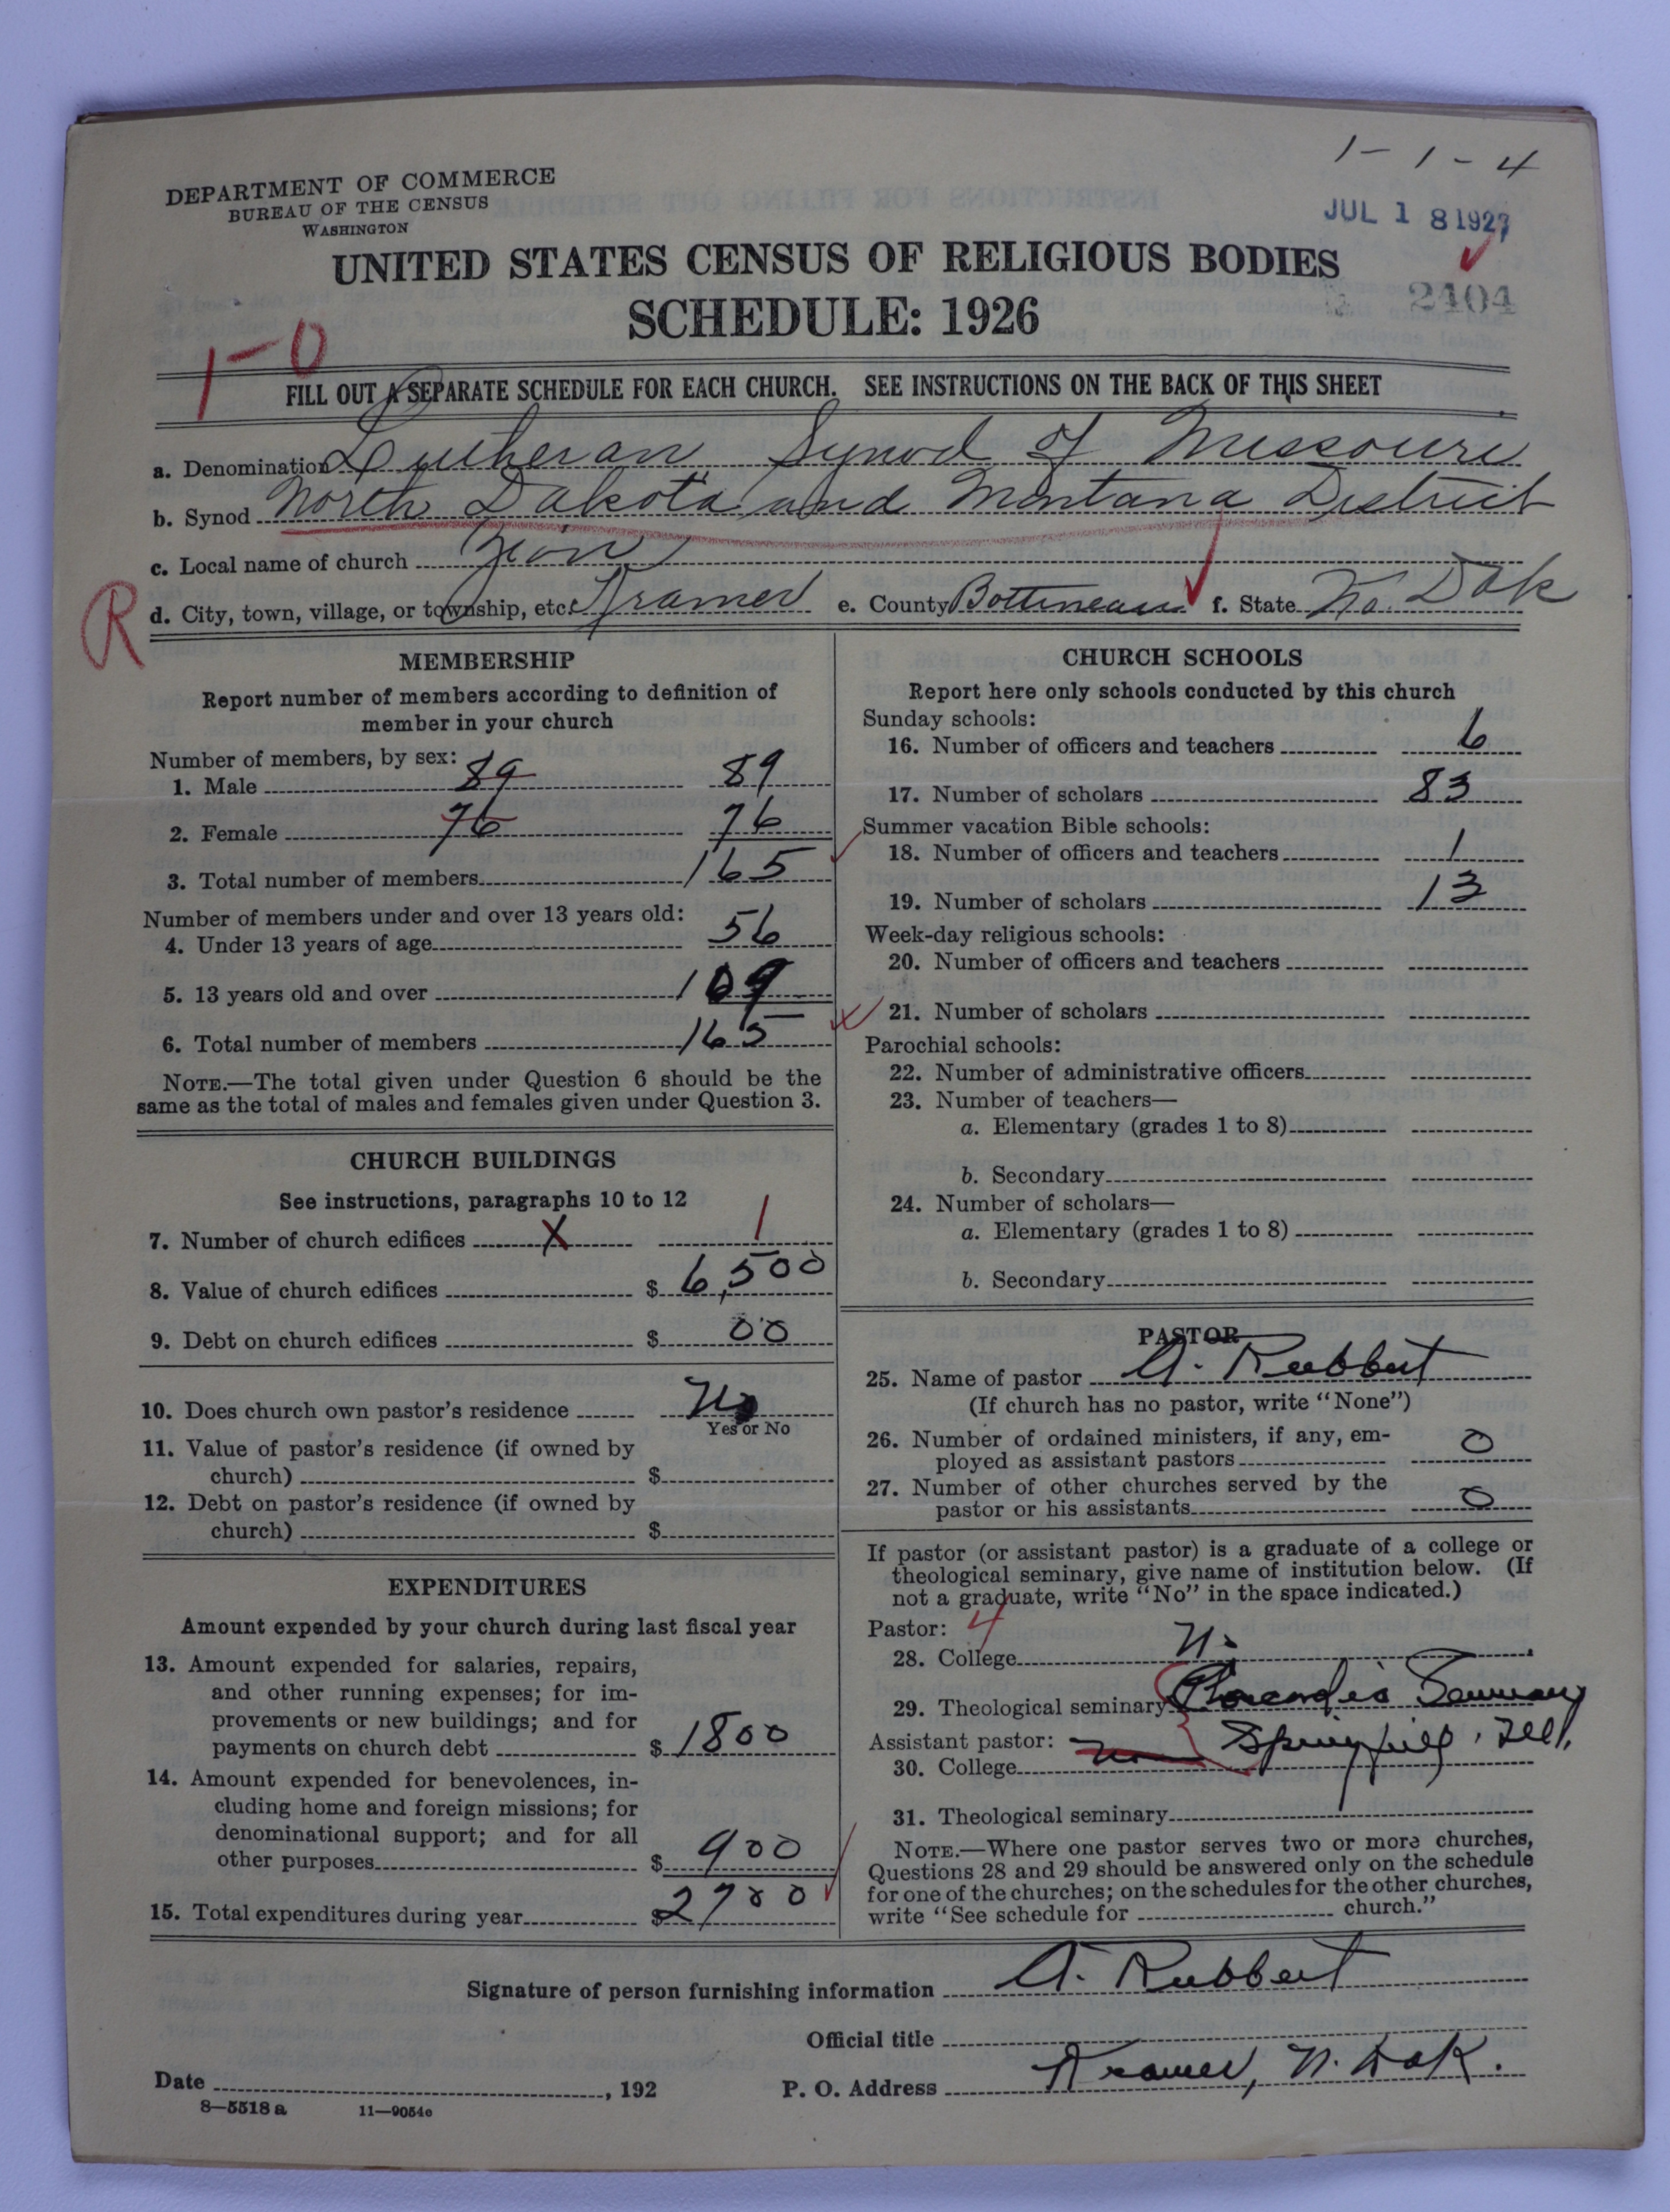 1-1-4
DEPARTMENT OF COMMERCE
BUREAU OF THE CENSUS
WASHINGTON
JUL 18 1927
UNITED STATES CENSUS OF RELIGIOUS BODIES
SCHEDULE: 1926
2404
1-0
FILL OUT A SEPARATE SCHEDULE FOR EACH CHURCH. SEE INSTRUCTIONS ON THE BACK OF THIS SHEET
a. Denomination Lutheran Synod of Missouri
b. Synod North Dakota and Montana District
c. Local name of church Zion
R
d. City, town, village, or township, etc. Kramer e. County Bottineau f. State No. Dak
MEMBERSHIP
Report number of members according to definition of
member in your church
Number of members, by sex:
1. Male 89 89
2. Female 76 76
3. Total number of members 165
Number of members under and over 13 years old:
4. Under 13 years of age 56
5. 13 years old and over 109
6. Total number of members 165
NOTE.—The total given under Question 6 should be the
same as the total of males and females given under Question 3.
CHURCH BUILDINGS
See instructions, paragraphs 10 to 12
7. Number of church edifices X 1
8. Value of church edifices $ 6,500
9. Debt on church edifices $ 00
10. Does church own pastor's residence No
Yes or No
11. Value of pastor's residence (if owned by
church) $
12. Debt on pastor's residence (if owned by
church) $
EXPENDITURES
Amount expended by your church during last fiscal year
13. Amount expended for salaries, repairs,
and other running expenses; for im-
provements or new buildings; and for
payments on church debt $ 1800
14. Amount expended for benevolences, in-
cluding home and foreign missions; for
denominational support; and for all
other purposes $ 900
15. Total expenditures during year $ 2700
CHURCH SCHOOLS
Report here only schools conducted by this church
Sunday schools:
16. Number of officers and teachers 6
17. Number of scholars 83
Summer vacation Bible schools:
18. Number of officers and teachers 1
19. Number of scholars 13
Week-day religious schools:
20. Number of officers and teachers
21. Number of scholars
Parochial schools:
22. Number of administrative officers
23. Number of teachers—
a. Elementary (grades 1 to 8)
b. Secondary
24. Number of scholars—
a. Elementary (grades 1 to 8)
b. Secondary
PASTOR
25. Name of pastor A. Rubbert
(If church has no pastor, write "None")
26. Number of ordained ministers, if any, em-
ployed as assistant pastors 0
27. Number of other churches served by the
pastor or his assistants 0
If pastor (or assistant pastor) is a graduate of a college or
theological seminary, give name of institution below. (If
not a graduate, write "No" in the space indicated.)
Pastor: 4
28. College
29. Theological seminary Concordia Seminary
Assistant pastor: Springfield, Ill.
30. College
31. Theological seminary
NOTE.—Where one pastor serves two or more churches,
Questions 28 and 29 should be answered only on the schedule
for one of the churches; on the schedules for the other churches,
write "See schedule for church."
Signature of person furnishing information A. Rubbert
Official title
Date , 192 P. O. Address Kramer, N. Dak.
8—5518 a 11—9054c